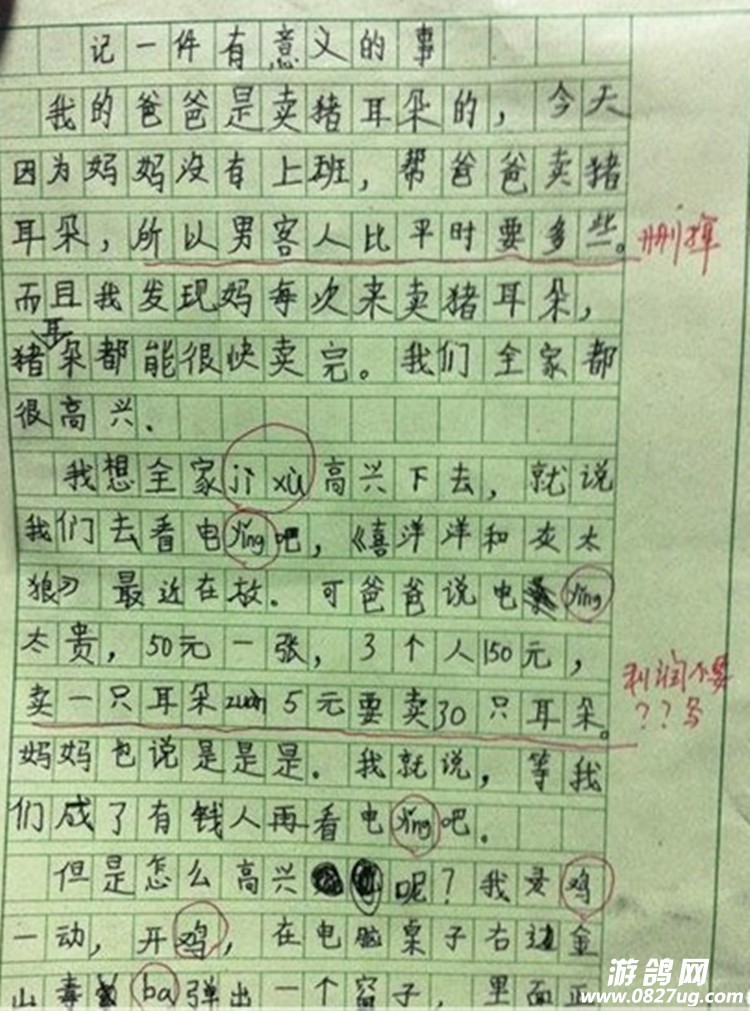 记一件有意义的事
我的爸爸是卖猪耳朵的，今天
因为妈妈没有上班，帮爸爸卖猪
耳朵，所以男客人比平时要多些。
删掉
而且我发现妈每次来卖猪耳朵，
猪耳朵都能很快卖完。我们全家都
很高兴.
我想全家jì xù高兴下去，就说
我们去看电yǐng吧，《喜洋洋和灰太
狼》最近在放.可爸爸说电yǐng
太贵，50元一张，3个人150元，
卖一只耳朵zuàn5元要卖30只耳朵。
利润不要
??多
妈妈也说是是是.我就说，等我
们成了有钱人再看电yǐng吧.
但是怎么高兴呢？我灵鸡
一动，开鸡，在电脑桌子右边金
山毒ba弹出一个窗子，里面正
游鸽网
www.0827ug.com